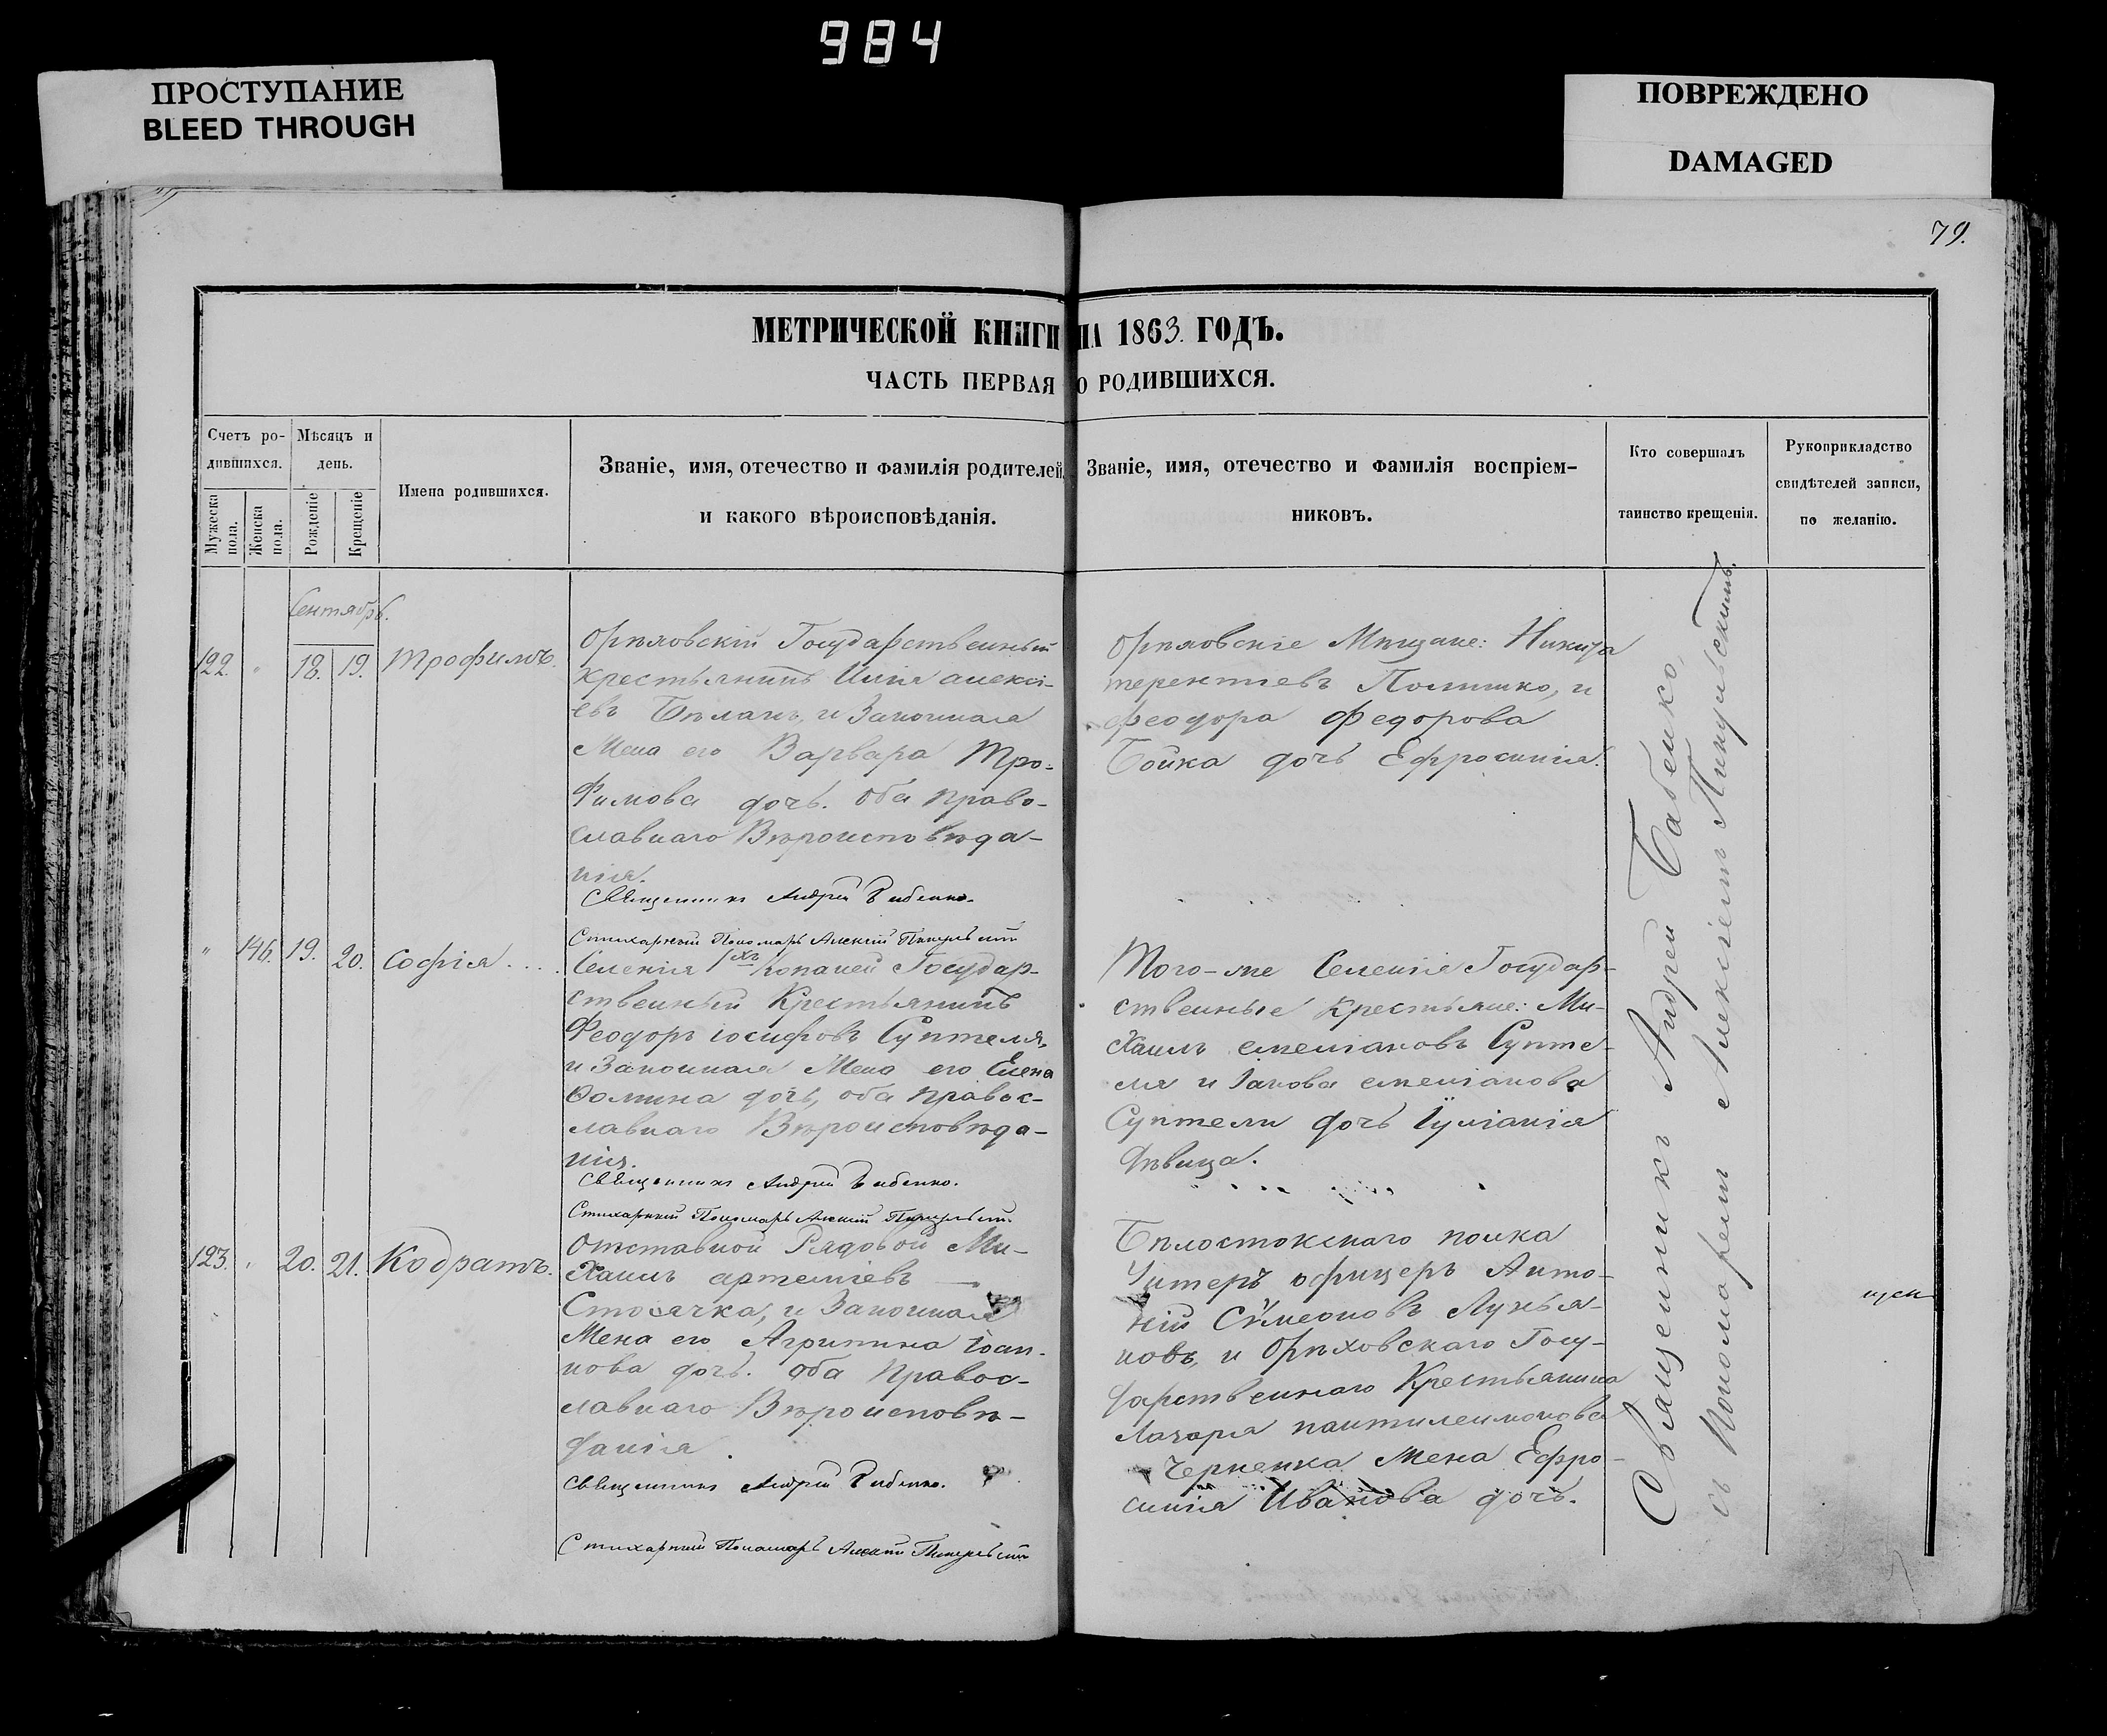 984
ПРОСТУПАНИЕ
BLEED THROUGH
ПОВРЕЖДЕНО
DAMAGED
79.
МЕТРИЧЕСКОЙ КНИГИ НА 1863. ГОДЪ.
ЧАСТЬ ПЕРВАЯ О РОДИВШИХСЯ.
Счетъ ро-
дившихся.
Мужеска пола.
Женска пола.
Мѣсяцъ и
день.
Рожденіе
Крещеніе
Имена родившихся.
Званіе, имя, отечество и фамилія родителей,
и какого вѣроисповѣданія.
Званіе, имя, отечество и фамилія воспріем-
никовъ.
Кто совершалъ
таинство крещенія.
Рукоприкладство
свидѣтелей записи,
по желанію.
Сентябрь.
122. " 18. 19. Трофимъ.
Орѣховскій Государственный
крестьянинъ Илія алексі-
евъ Бѣланъ, и Законная
Жена его Варвара Тро-
фимова дочь. Оба право-
славнаго Вѣроисповѣда-
нія.
Священникъ Андрей Бабенко.
Стихарный Пономарь Алексій Пикульскій
Орѣховскіе Мѣщане: Никита
терентіевъ Полишко, и
феодора федорова
Бойка дочь Ефросинія.
" 146. 19. 20. Софія . . . .
Селенія Копаней Государ-
ственный Крестьянинъ
Феодоръ іосифовъ Суптеля,
и Законная Жена его Елена
Фомина дочь, оба правос-
лавнаго Вѣроисповѣда-
нія.
Священникъ Андрей Бабенко.
Стихарный Пономарь Алексій Пикульскій.
Того-же Селенія Государ-
ственные крестьяне: Ми-
хаилъ стефановъ Супте-
ля и Іакова стефанова
Суптели дочь Іуліанія
дѣвица.
123. " 20. 21. Кодратъ.
Отставной Рядовой Ми-
хаилъ артеміевъ —
Стосачка, и Законная
Жена его Агрипина іоан-
нова дочь. оба Правос-
лавнаго Вѣроисповѣ-
данія.
Священникъ Андрей Бабенко.
Стихарный Пономарь Алексій Пикульскій
Бѣлостокскаго полка
Унтеръ офицеръ Анто-
ній Сѵмеоновъ Лукья-
новъ, и Орѣховскаго Госу-
дарственнаго Крестьянина
Лазаря пантилеимонова
Черненка жена Ефро-
синія Иванова дочь.
Священникъ Андрей Бабенко,
съ Пономаремъ Алексіемъ Пикульскимъ.